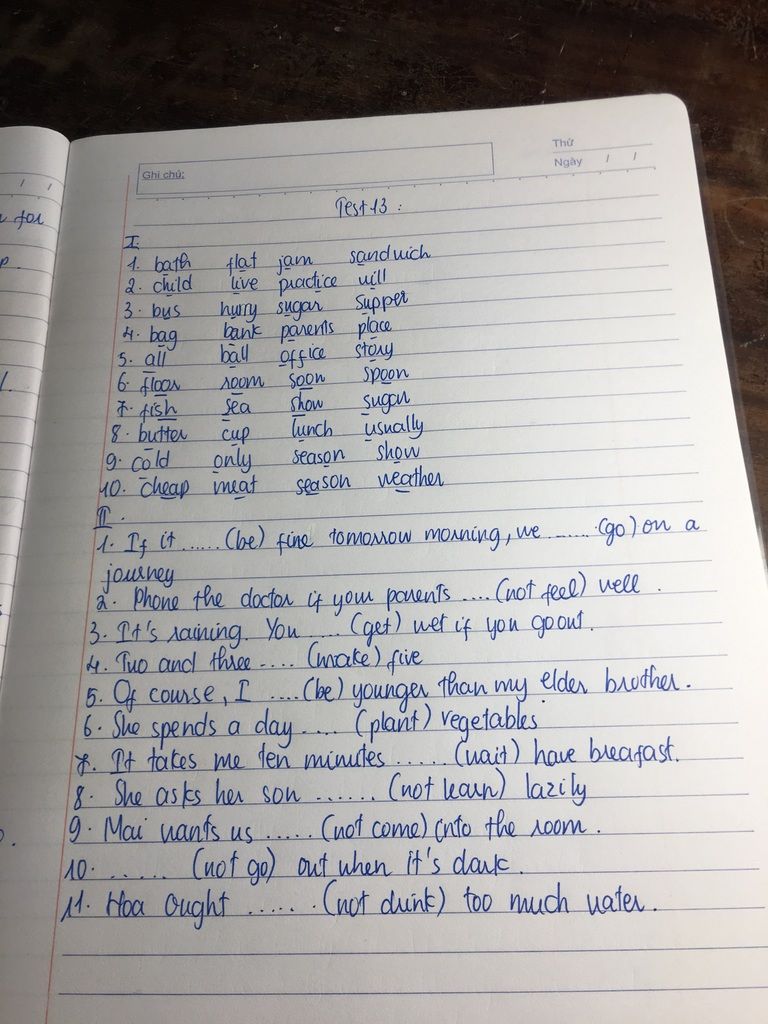 n for
p.
/.
o.
Ghi chú:
Thứ
Ngày / /
Test 13 :
I.
1. bath flat jam sandwich
2. child live practice will
3. bus hurry sugar supper
4. bag bank parents place
5. all ball office story
6. floor room soon spoon
7. fish sea show sugar
8. butter cup lunch usually
9. cold only season show
10. cheap meat season weather
II.
1. If it ...... (be) fine tomorrow morning, we ...... (go) on a
journey
2. Phone the doctor if your parents .... (not feel) well .
3. It's raining. You .... (get) wet if you go out.
4. Two and three .... (make) five
5. Of course, I .... (be) younger than my elder brother.
6. She spends a day .... (plant) vegetables
7. It takes me ten minutes ...... (wait) have breafast.
8. She asks her son ...... (not learn) lazily
9. Mai wants us ..... (not come) into the room.
10. ...... (not go) out when it's dark.
11. Hoa ought ...... (not drink) too much water.